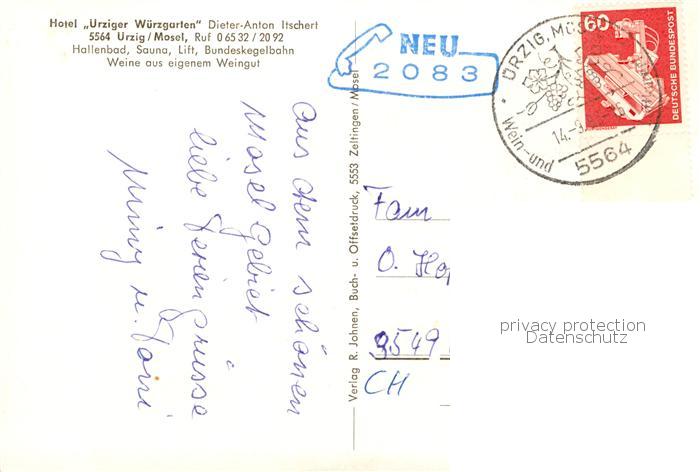 Hotel „Urziger Würzgarten" Dieter-Anton Itschert
5564 Urzig/Mosel, Ruf 0 65 32 / 20 92
Hallenbad, Sauna, Lift, Bundeskegelbahn
Weine aus eigenem Weingut
NEU
2083
ÜRZIG, MOSEL
Wein- und
14.-9.
5564
60
DEUTSCHE BUNDESPOST
Aus dem schönen
Mosel Gebiet
liebe Feriengrüsse
u. Toni
Verlag R. Johnen, Buch- u. Offsetdruck, 5553 Zeltingen/Mosel
Fam
O. Ho
9549
CH
privacy protection
Datenschutz